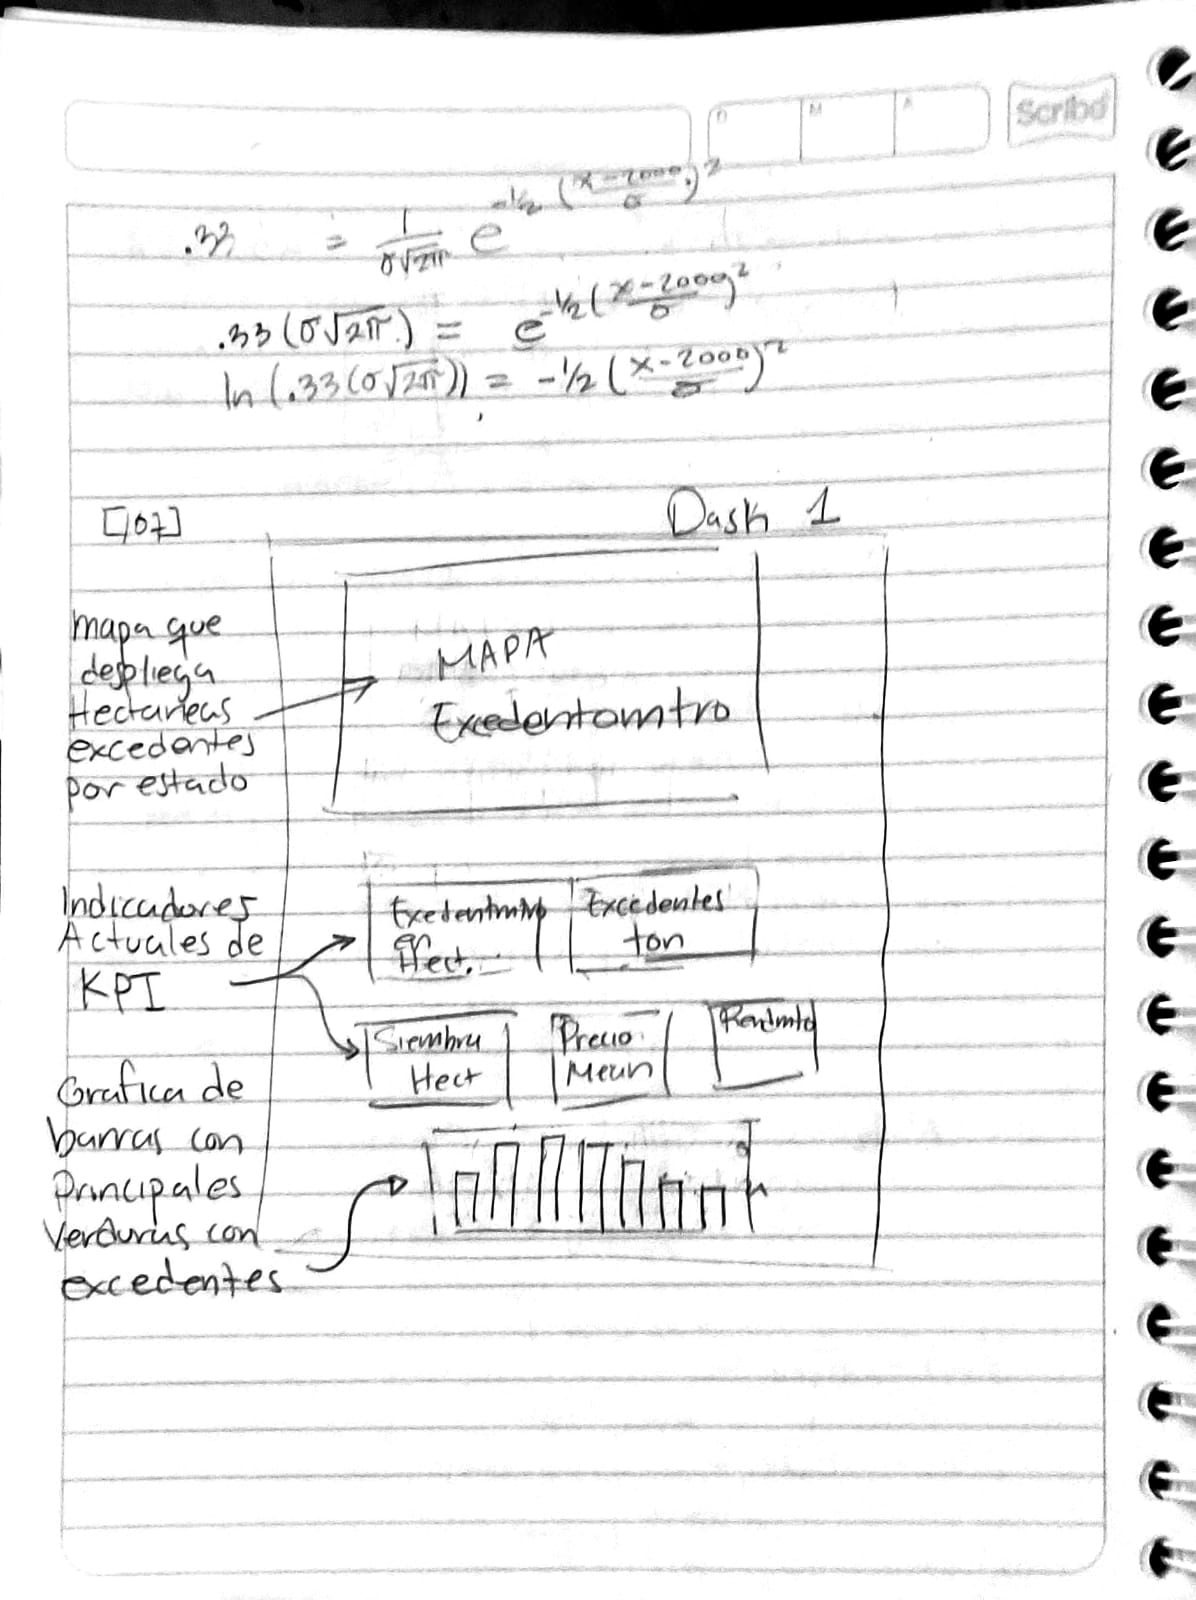 D M A
Scribe
.33 = 1/(σ√2π) e^-1/2 (x-2000/σ)²
.33 (σ√2π) = e^-1/2 (x-2000/σ)²
ln (.33 (σ√2π)) = -1/2 (x-2000/σ)²
Dash 1
mapa que
despliega
Hectareas
excedentes
por estado
MAPA
Exedentomtro
Indicadores
Actuales de
KPI
en
Hect.
Excedentes
ton
Siembra
Hect
Precio
Mean
Grafica de
barras con
Principales
Verduras con
excedentes